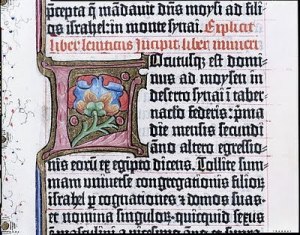 precepta q̄ mandauit dn̄s moysi ad filios
israhel: in monte synai. Explicit
liber leuiticus Incipit liber numeri
Locutusq̄ est dominus
ad moysen in
deserto synai i̅ tabernaclo
federis: p̄ma
die mensis secundi
an̄o altero egressionis
eoru̅ ex egipto dicens. Tollite summam
uniuerse congregationis filior̄
israhel p̄ cognationes & domos suas
et nomina singulor̄. quicquid sexus